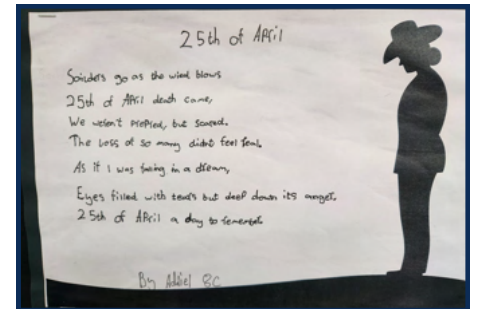 25th of April
Soilders go as the wind blows
25th of April death came,
We weren't prepred, but scared.
The Loss of so many didnt feel real.
As if I was being in a dream,
Eyes filled with tears but deep down its anger.
25th of April a day to remember.
By Adriel 8C